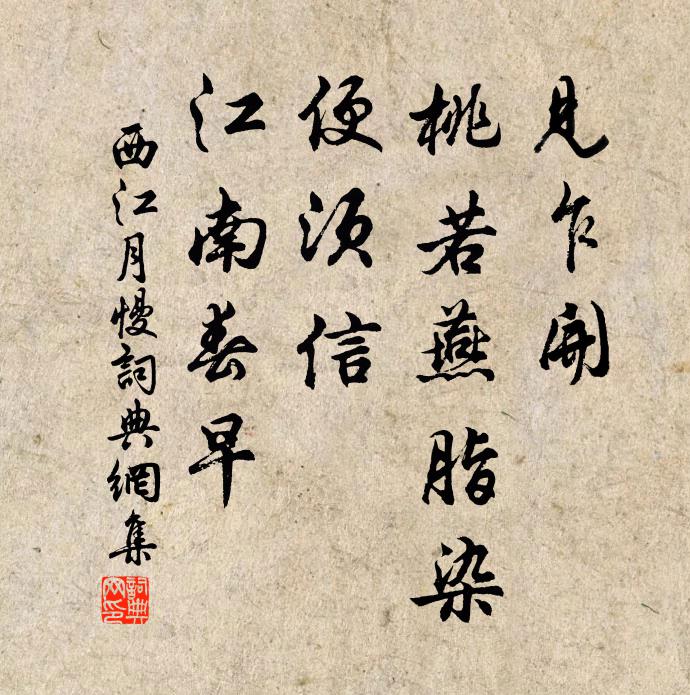 見乍開
桃若燕脂染
便須信
江南春早
西江月慢詞典網集
詞典網印